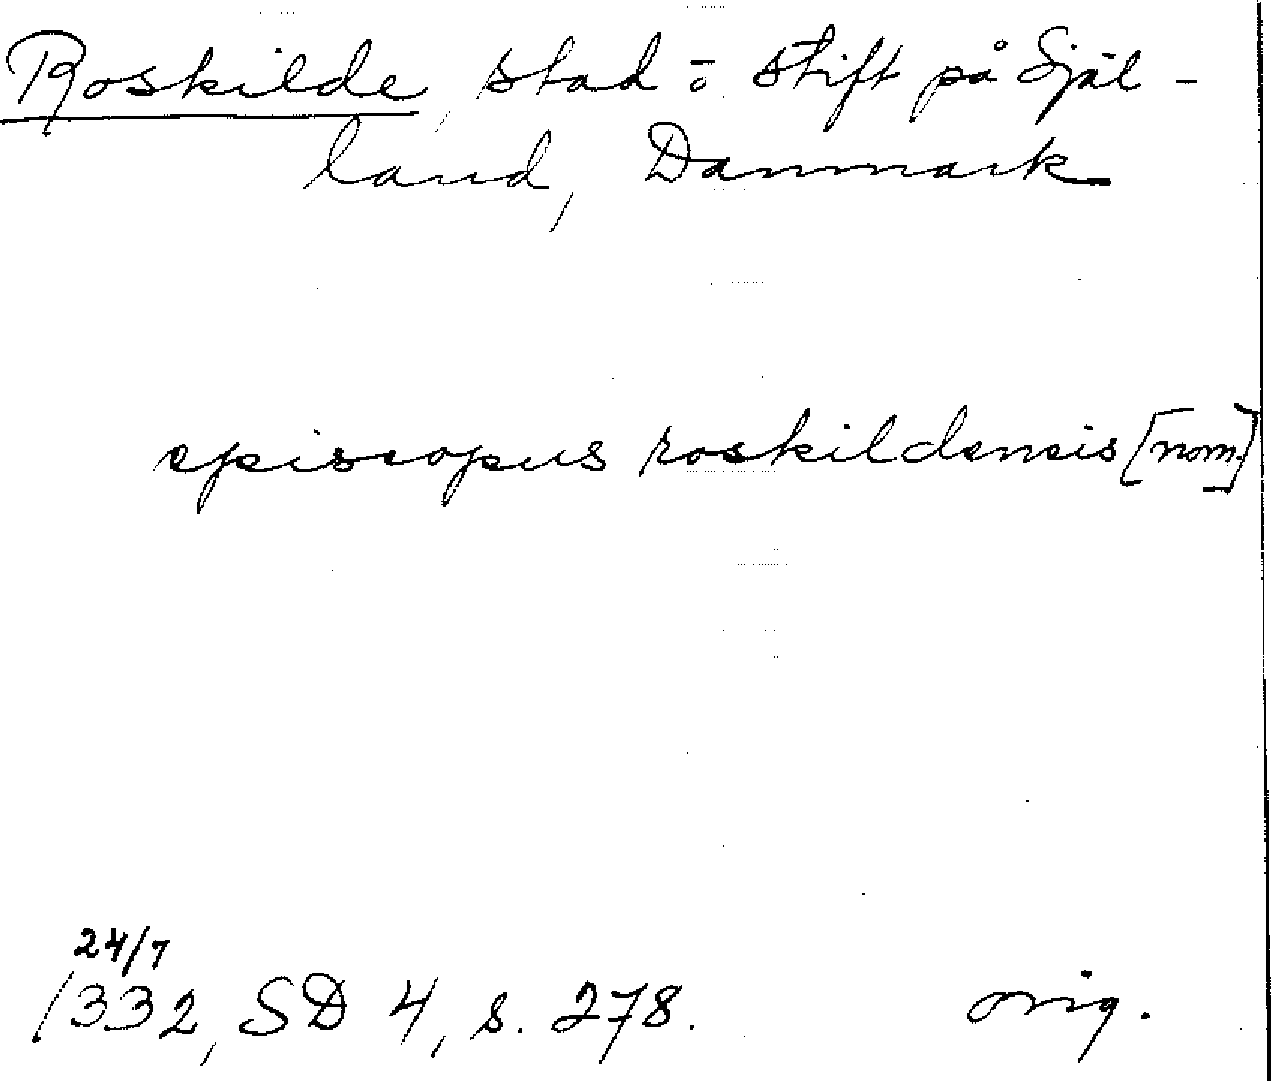 Roskilde, stad o stift på Själ-
land, Danmark
episcopus roskildensis [nom.]
24/7
1332, SD 4, s. 278. orig.